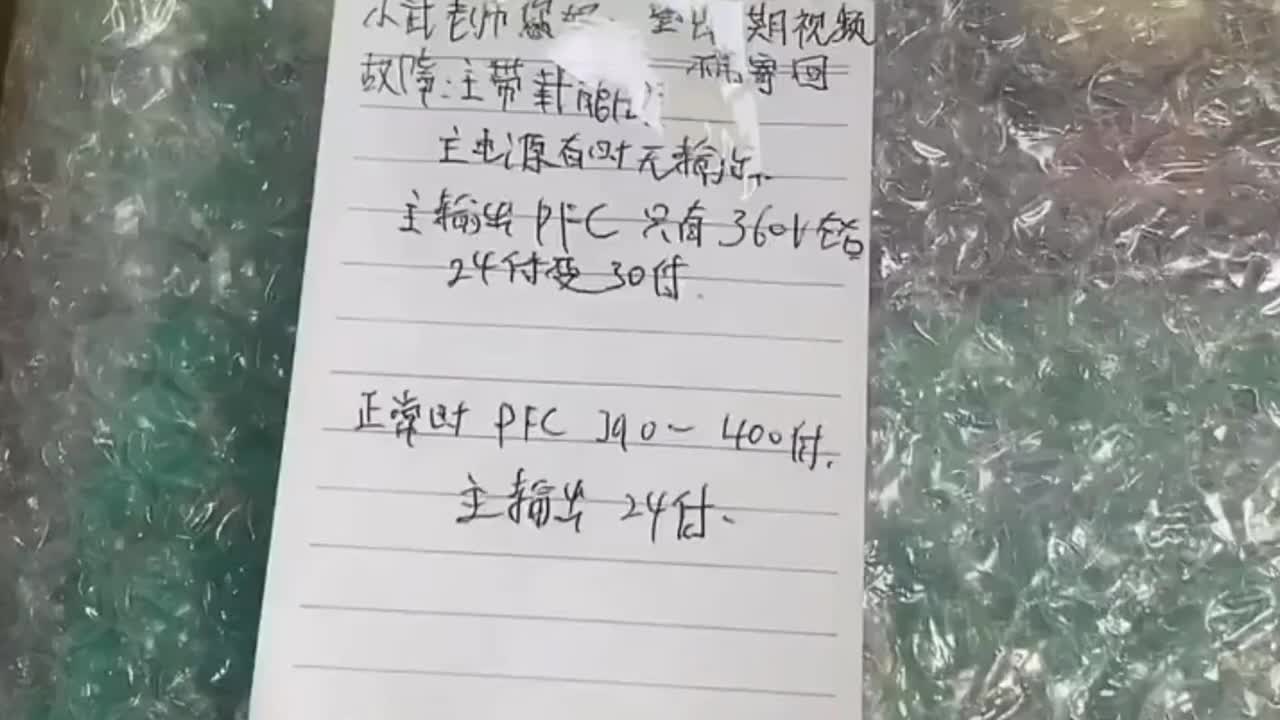 老师您好 出 期视频
故障:主带载能 寄回
主电源有时无输出.
主输出 PFC 只有 360V
24付变 30付.
正常时 PFC 390~400付.
主输出 24付.